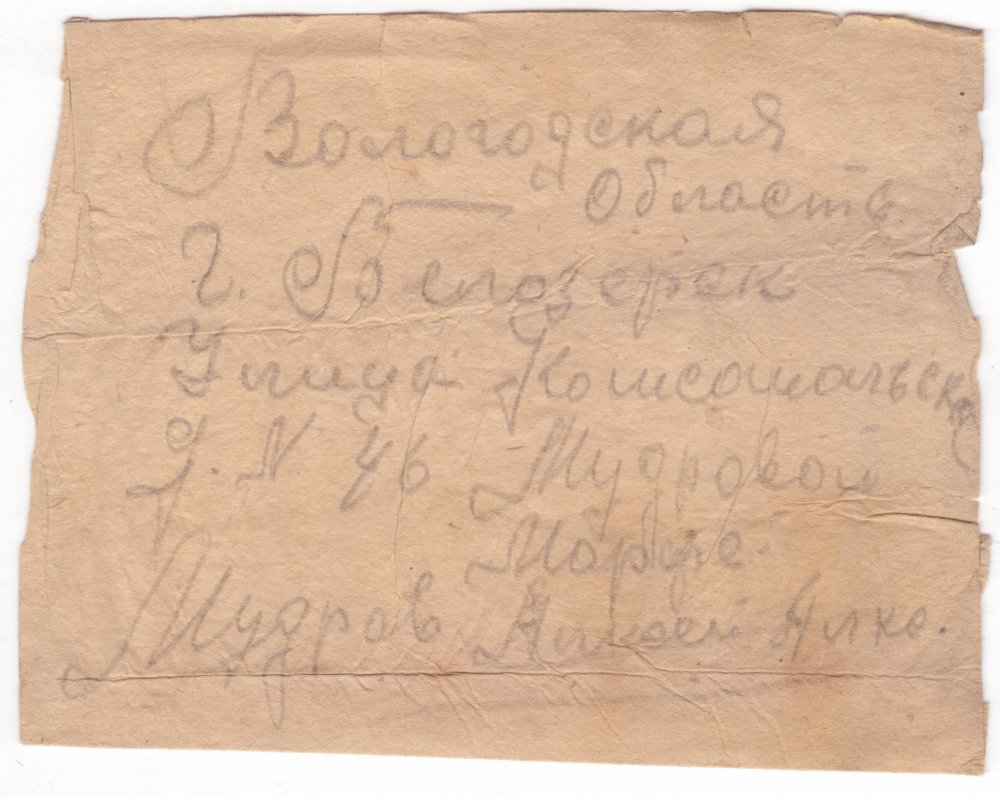 Вологодская
Область.
г. Белозерск
Улица Комсомальска
д. N 46 Мудровой
Марфе.
Мудров Алкс.